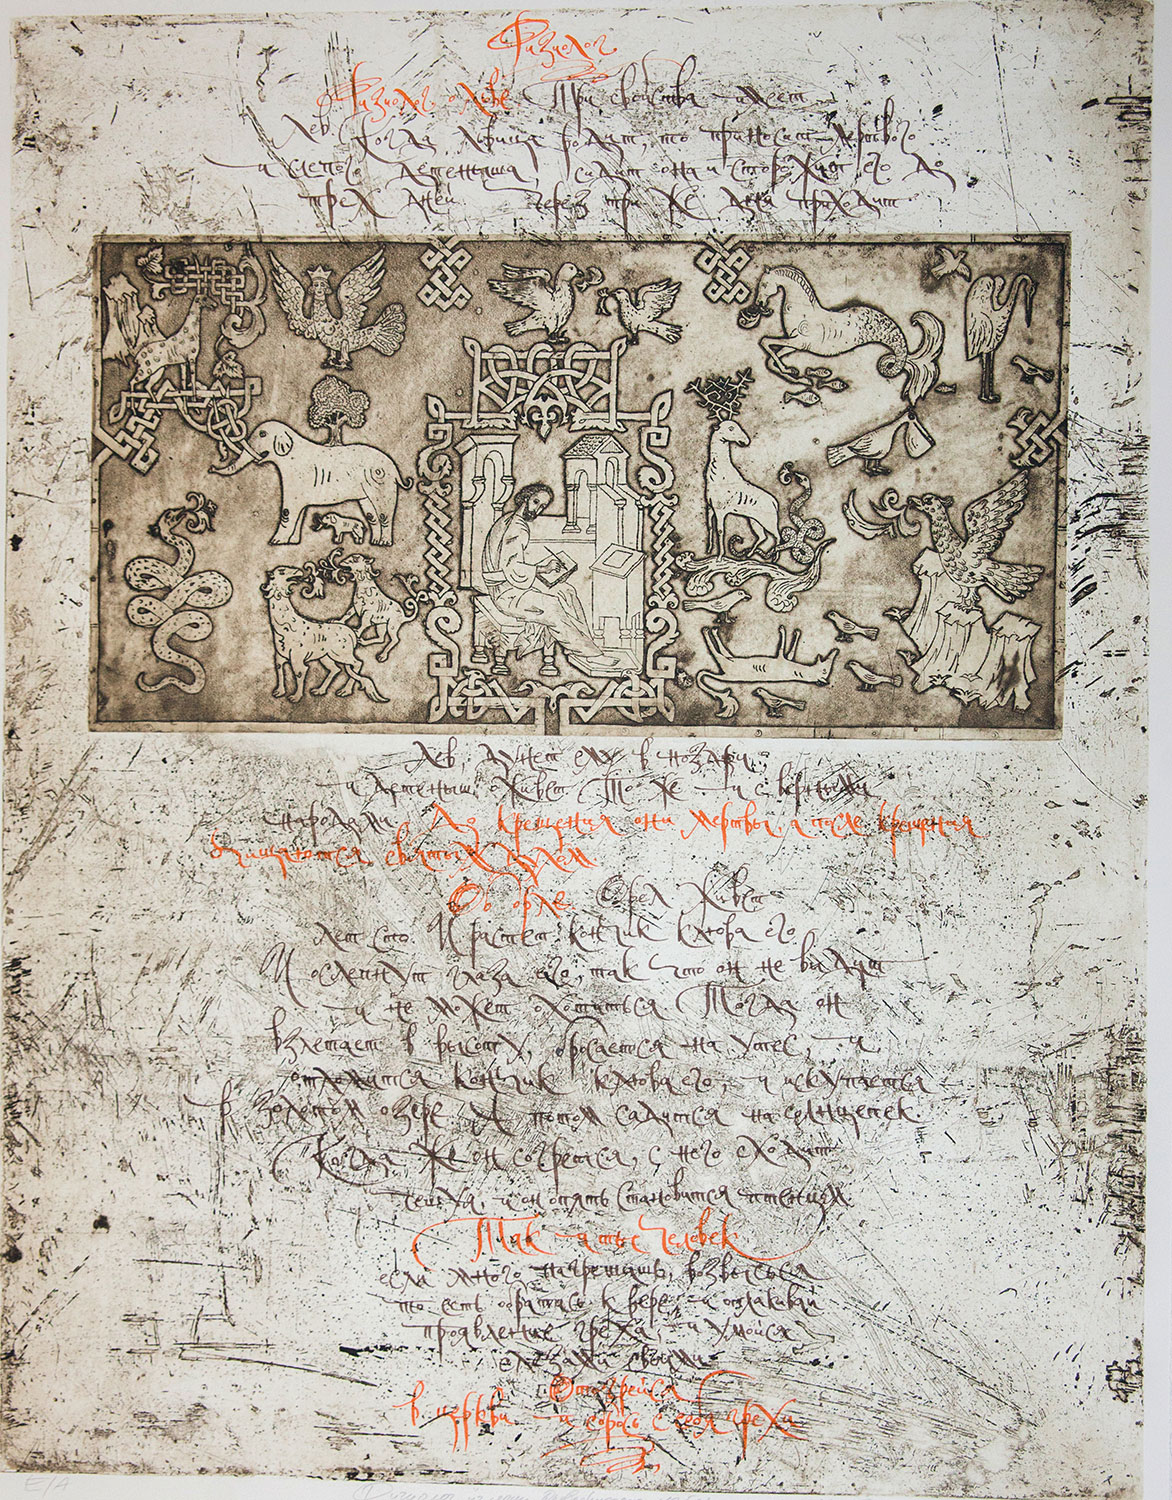 Физиолог
Физиолог о льве Три свойства имеет
лев. Когда львица родит, то приносит мертвого
и слепого детеныша, сидит она и сторожит его до
трех дней. Через три же дня приходит
лев, дунет ему в ноздри,
и детеныш оживет. То же и с верными
народами. До крещения они мертвы, а после крещения
очищаются святым духом
Об орле. Орел живет
лет сто. И растет кончик клюва его
И ослепнут глаза его, так что он не видит
и не может охотиться. Тогда он
взлетает в высоту, бросается на утес, и
отломится кончик клюва его, и искупается
в золотом озере. А потом садится на солнцепек.
Когда же он согреется, с него сходит
чешуя, и он опять становится птенцом.
Так и ты человек
если много нагрешишь, возвысься
то есть обратись к вере и оплакивай
проявление греха, и умойся
слезами своими
Отогрейся
в церкви и сбрось с себя грехи
E/A